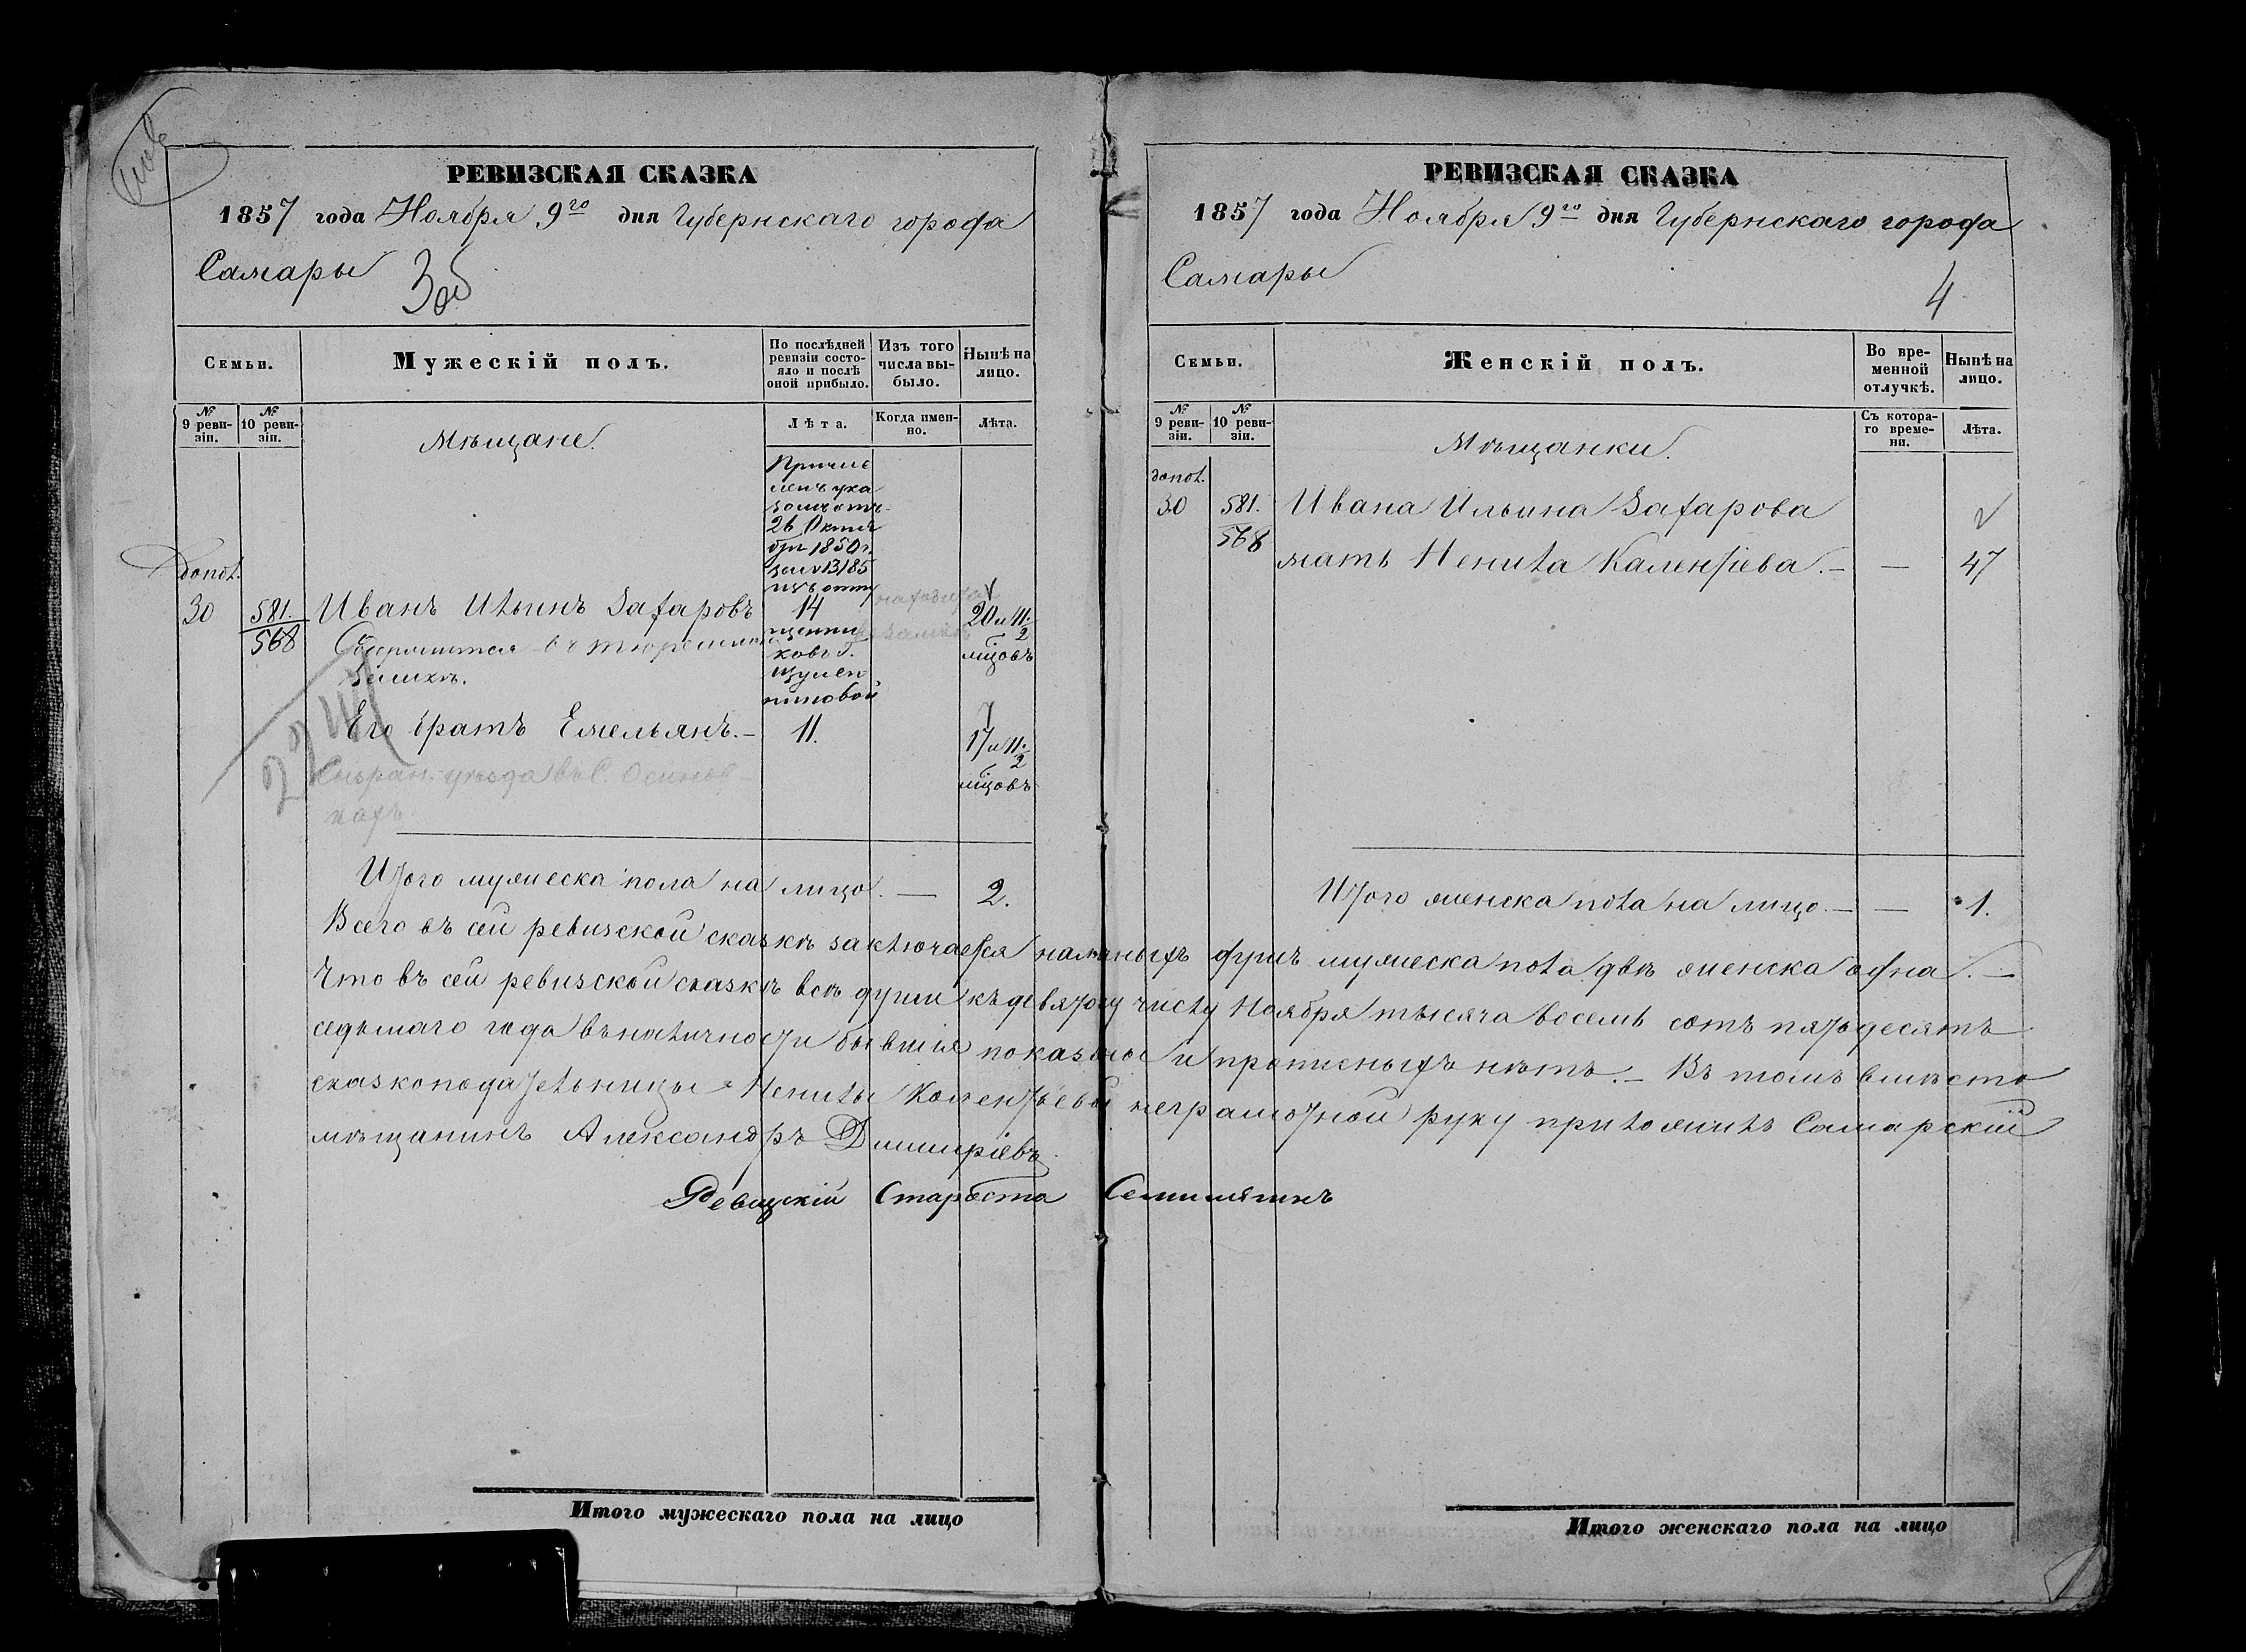 РЕВИЗСКАЯ СКАЗКА
1857 года Ноября 9го дня Губернскаго города
Самары
3об
Семьи.
Мужескій полъ.
По послѣдней ревизіи состояло и послѣ оной прибыло.
Изъ того числа выбыло.
Нынѣ на лицо.
№ 9 ревизіи.
№ 10 ревизіи.
Мѣщане.
Лѣта.
Когда именно.
Лѣта.
Причис
ленъ ука
зомъ отъ
26 Октя
бря 1850 г.
за № 13185
изъ отпу
щенни
ковъ Г.
допол.
30
581.
568
Иванъ Ильинъ Захаровъ
14
20 и 11 1/2
мѣцовъ
Содержится въ тюремномъ
замкѣ.
Его братъ Емельянъ.-
11.
17 и 11 1/2
мѣцовъ
уѣзда въ С.
Итого мужеска пола на лицо. — 2.
РЕВИЗСКАЯ СКАЗКА
1857 года Ноября 9го дня Губернскаго города
Самары
4
Семьи.
Женскій полъ.
Во временной отлучкѣ.
Нынѣ на лицо.
№ 9 ревизіи.
№ 10 ревизіи.
Мѣщанки.
Съ котораго времени.
Лѣта.
допол.
30
581.
568
Ивана Ильина Захарова
мать Ненила Калентіева.- — 47
Итого женска пола на лицо.- — 1.
Всего въ сей ревизской сказкѣ заключается наличныхъ душъ мужеска пола двѣ женска одна.—
Что въ сей ревизской сказкѣ всѣ души къ девятому числу Ноября тысяча восемь сотъ пятьдесятъ
седьмаго года въ наличности бывшія показаны и прописныхъ нѣтъ.- Въ томъ вмѣсто
сказкоподательницы Ненилы Калентьевой неграмотной руку приложилъ Самарскій
мѣщанинъ Александръ Димитріевъ
Ревизскій Староста
Итого мужескаго пола на лицо
Итого женскаго пола на лицо